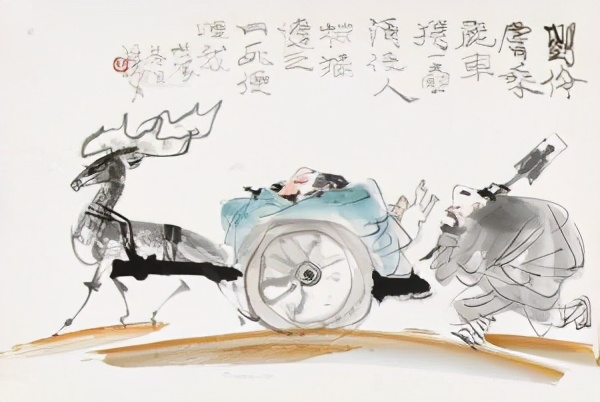 劉伶
嘗乘
鹿車
攜一壺
酒使人
隨之
曰死便
埋我